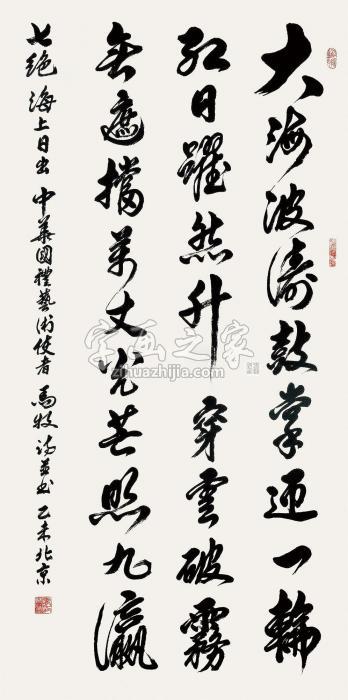 大海波濤鼓掌迎一輪
紅日躍然升穿雲破霧
無遮擋萬丈光芒照九瀛
七絕 海上日出 中華國禮藝術使者 馬牧詩並書 乙未北京
字画之家
zihuazhijia.com